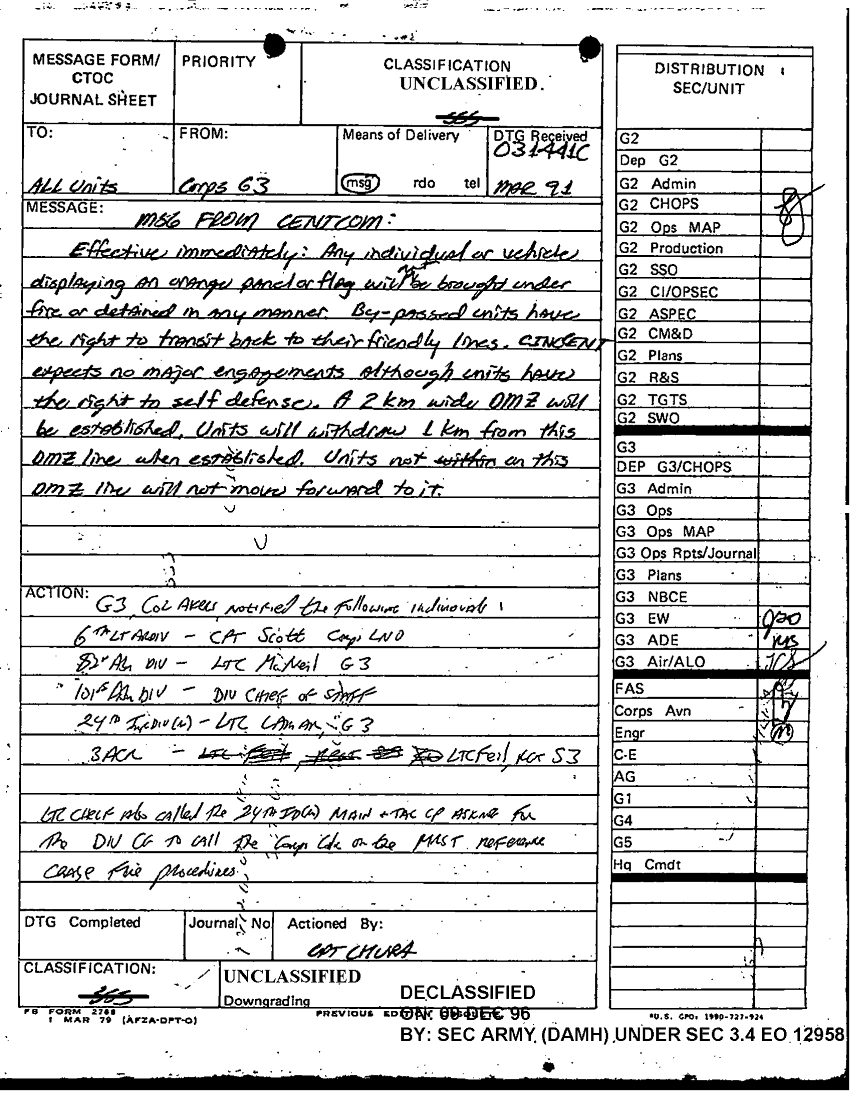 MESSAGE FORM/
CTOC
JOURNAL SHEET
PRIORITY
CLASSIFICATION
UNCLASSIFIED.
TO:
ALL Units
FROM:
Corps G3
Means of Delivery
msg rdo tel
DTG Received
031441C
MAR 91
MESSAGE:
MSG FROM CENTCOM:
Effective immediately: Any individual or vehicle
displaying an orange panel or flag will not be brought under
fire or detained in any manner. By-passed units have
the right to transit back to their friendly lines. CINCCENT
expects no major engagements although units have
the right to self defense. A 2 km wide DMZ will
be established. Units will withdraw 1 km from this
DMZ line when established. Units not within on this
DMZ line will not move forward to it.
ACTION:
G3, Col Akers, notified the following individuals:
6th LT ARDIV - CPT Scott Corps LNO
82d Abn DIV - LTC McNeil G3
101st Abn DIV - DIV Chief of Staff
24th Inf Div (M) - LTC LAMAR, G3
3ACR - LTC Feil, S3
LTC also called the 24th ID(M) MAIN + TAC CP Asking for
the DIV CG to call the Corps Cdr on the MRST reference
Cease Fire procedures.
DTG Completed
Journal No
Actioned By:
CPT CHURA
CLASSIFICATION:
UNCLASSIFIED
Downgrading
FB FORM 2768
1 MAR 79 (AFZA-DPT-O)
PREVIOUS
DECLASSIFIED
ON: 09 DEC 96
BY: SEC ARMY (DAMH) UNDER SEC 3.4 EO 12958
DISTRIBUTION
SEC/UNIT
G2
Dep G2
G2 Admin
G2 CHOPS
G2 Ops MAP
G2 Production
G2 SSO
G2 CI/OPSEC
G2 ASPEC
G2 CM&D
G2 Plans
G2 R&S
G2 TGTS
G2 SWO
G3
DEP G3/CHOPS
G3 Admin
G3 Ops
G3 Ops MAP
G3 Ops Rpts/Journal
G3 Plans
G3 NBCE
G3 EW
G3 ADE
G3 Air/ALO
FAS
Corps Avn
Engr
C-E
AG
G1
G4
G5
Hq Cmdt
*U.S. GPO: 1990-727-924